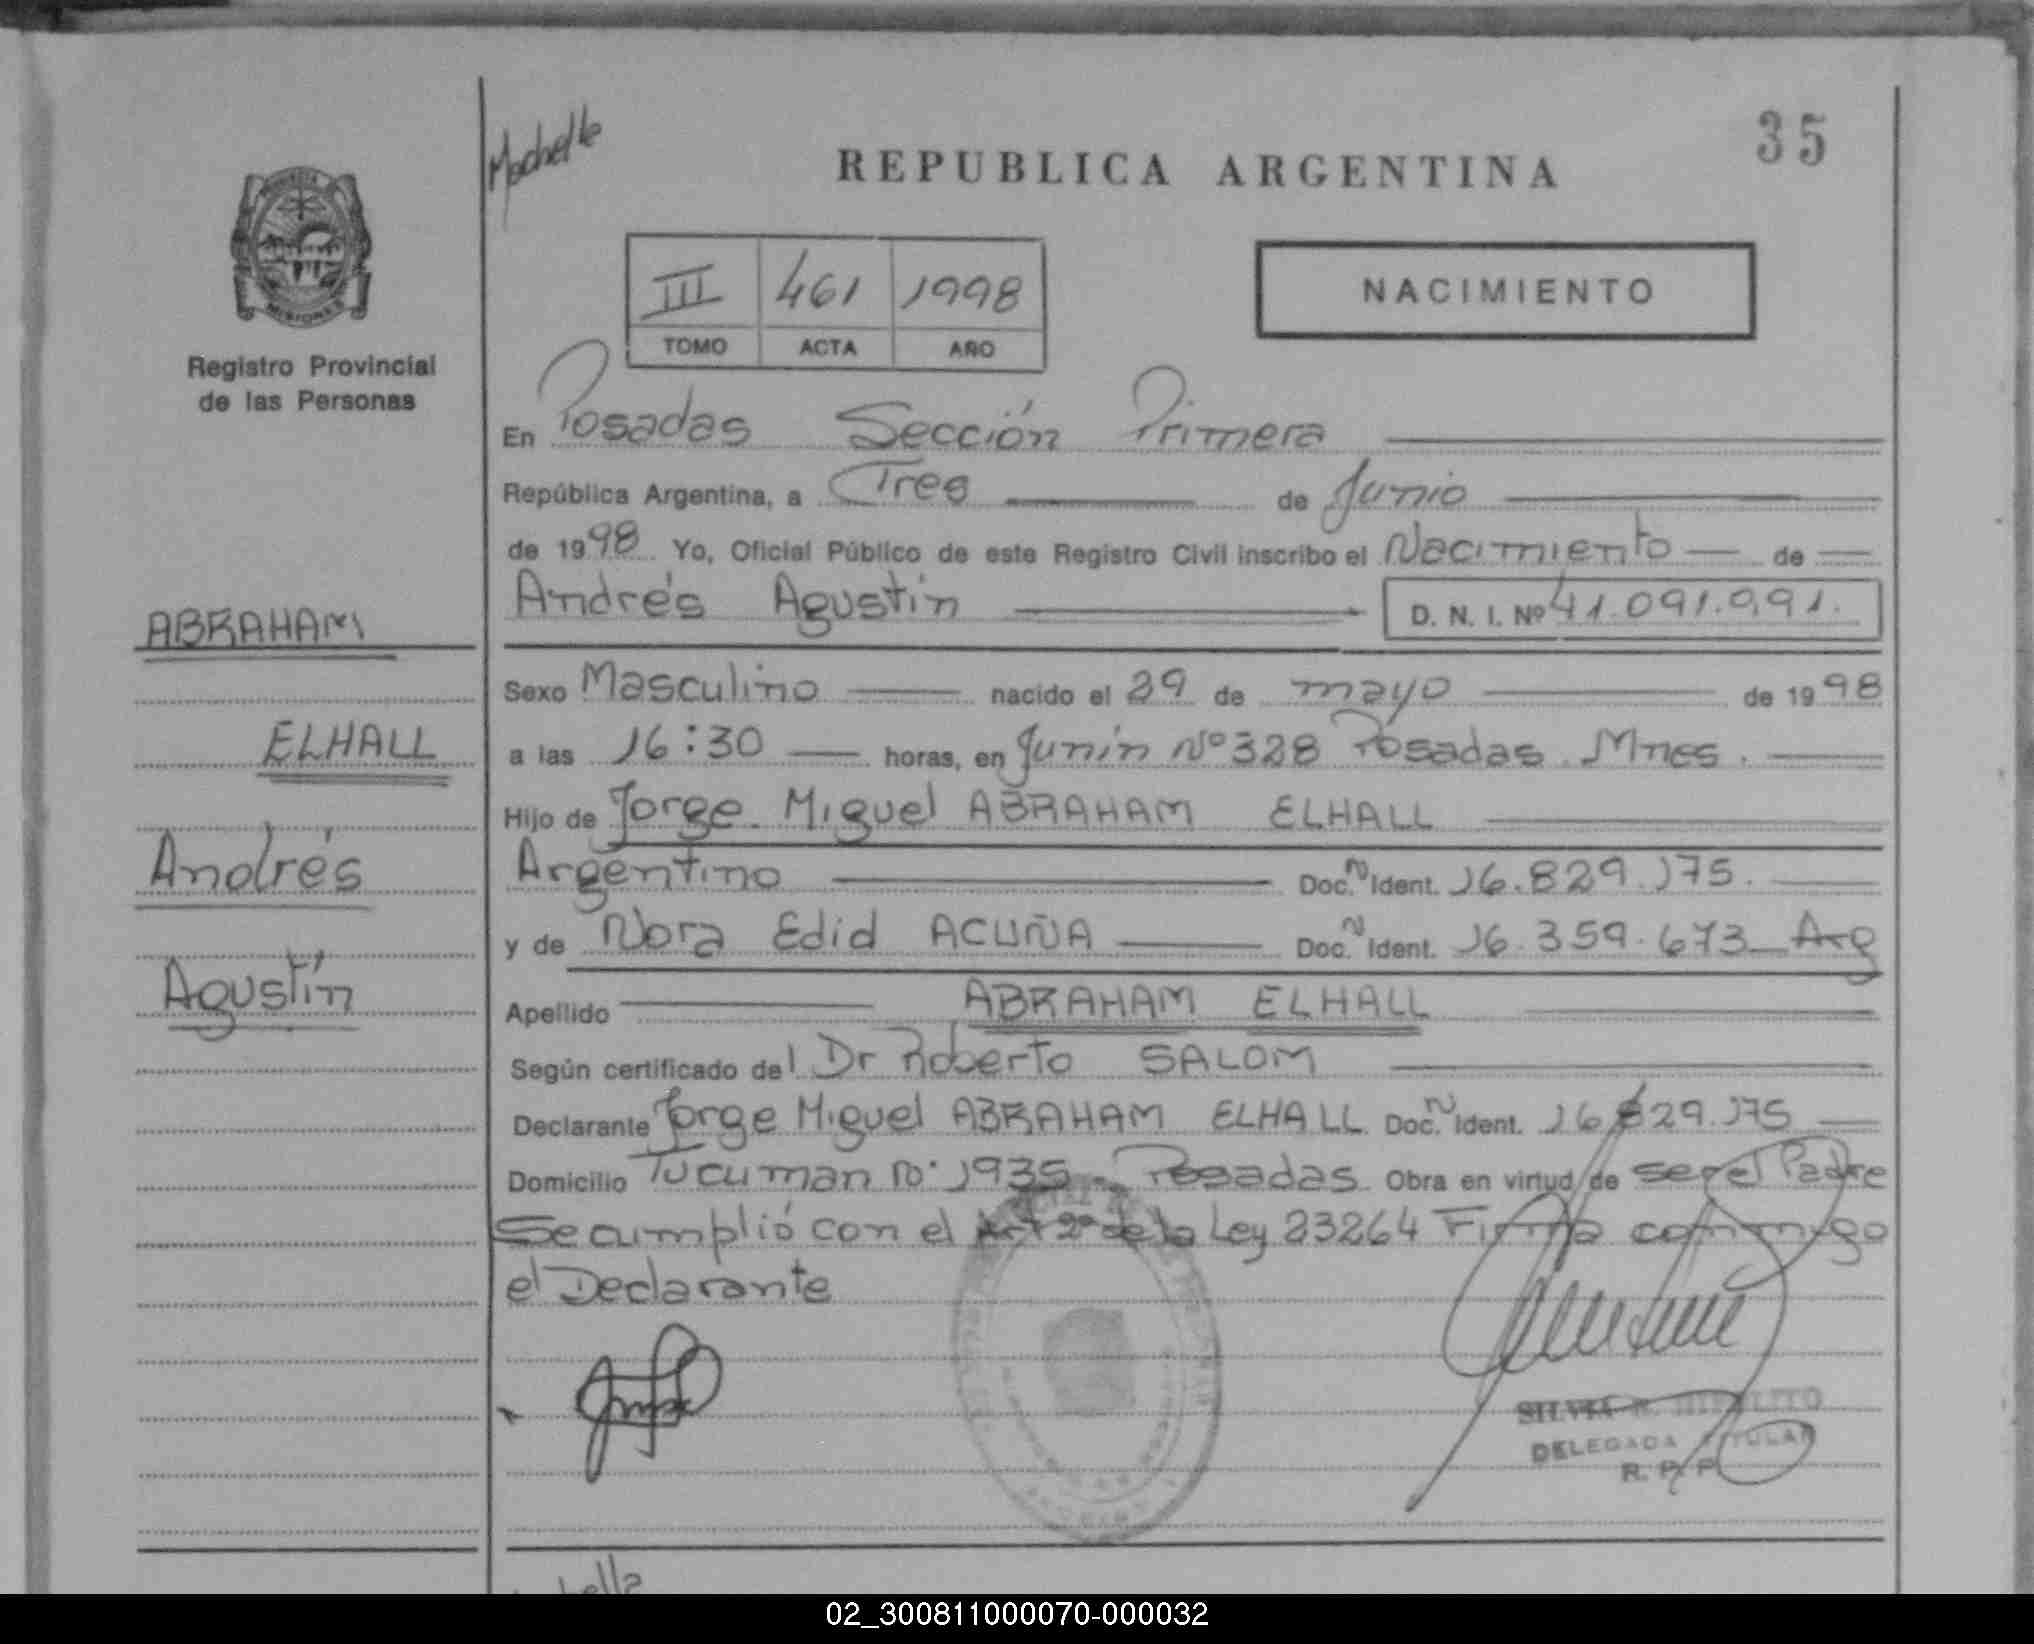 35
Mochelle
REPUBLICA ARGENTINA
III 461 1998
TOMO ACTA AÑO
NACIMIENTO
MISIONES
Registro Provincial
de las Personas
ABRAHAM
ELHALL
Andrés
Agustín
En Posadas Sección Primera
República Argentina, a Tres de Junio
de 1998 Yo, Oficial Público de este Registro Civil inscribo el Nacimiento de
Andrés Agustín D. N. I. Nº 41.091.091.
Sexo Masculino nacido el 29 de mayo de 1998
a las 16:30 horas, en Junín Nº 328 Posadas. Mnes.
Hijo de Jorge Miguel ABRAHAM ELHALL
Argentino Doc. N Ident. 16.829.175.
y de Nora Edid ACUÑA Doc. N Ident. 16.359.673 Arg
Apellido ABRAHAM ELHALL
Según certificado del Dr Roberto SALOM
Declarante Jorge Miguel ABRAHAM ELHALL Doc. N Ident. 16.829.175
Domicilio Tucuman no. 1935 - Posadas Obra en virtud de ser el Padre
Se cumplió con el Art 2º de la Ley 23264 Firma conmigo
el Declarante
SILVIA HIPOLITO
DELEGADA TITULAR
R. P. P
02_300811000070-000032